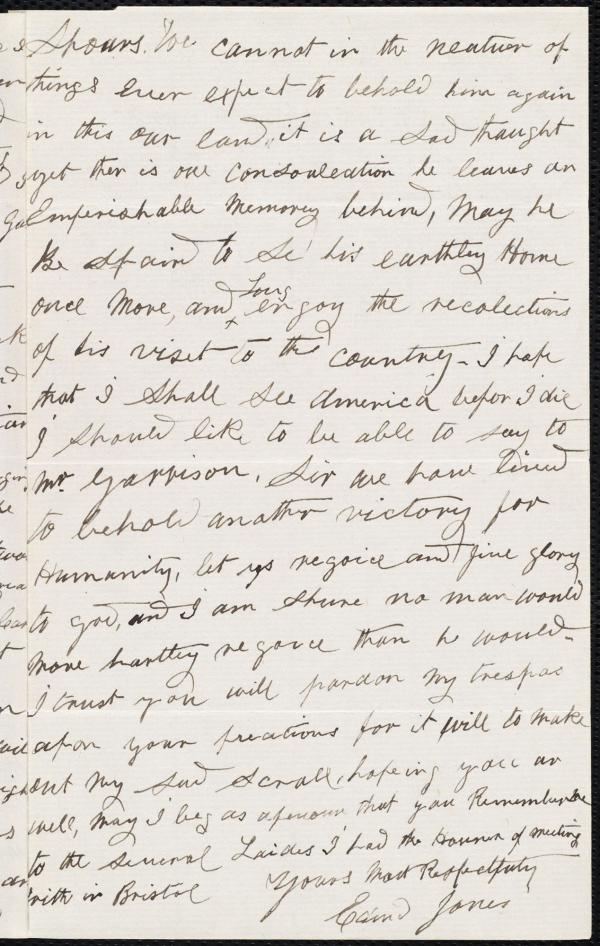 Shours. We cannot in the neatuer of
things ever expect to behold him again
in this our land, it is a sad thought
yet ther is one Consouleation he leaves an
Imperishable Memorey behind, May he
Be Spaird to Se his earthley Home
once More, and Long engoy the recolections
of his viset to the countrey - I hope
that I shall See America befor I die
I should like to be able to say to
Mr Garrison, Sir we have lived
to behold another victory for
Humanity, let us regoice and give glory
to god, and I am Shure no man would
More hartley regoice than he would -
I trust you will pardon My trespas
apon your for it will to make
out My sad Scrall, hopeing you ar
well, May I beg as a that you Remember me
to the Several Laides I had the Honner of meeting
with in Bristol Yours Most Respectfuly
Edmd Jones